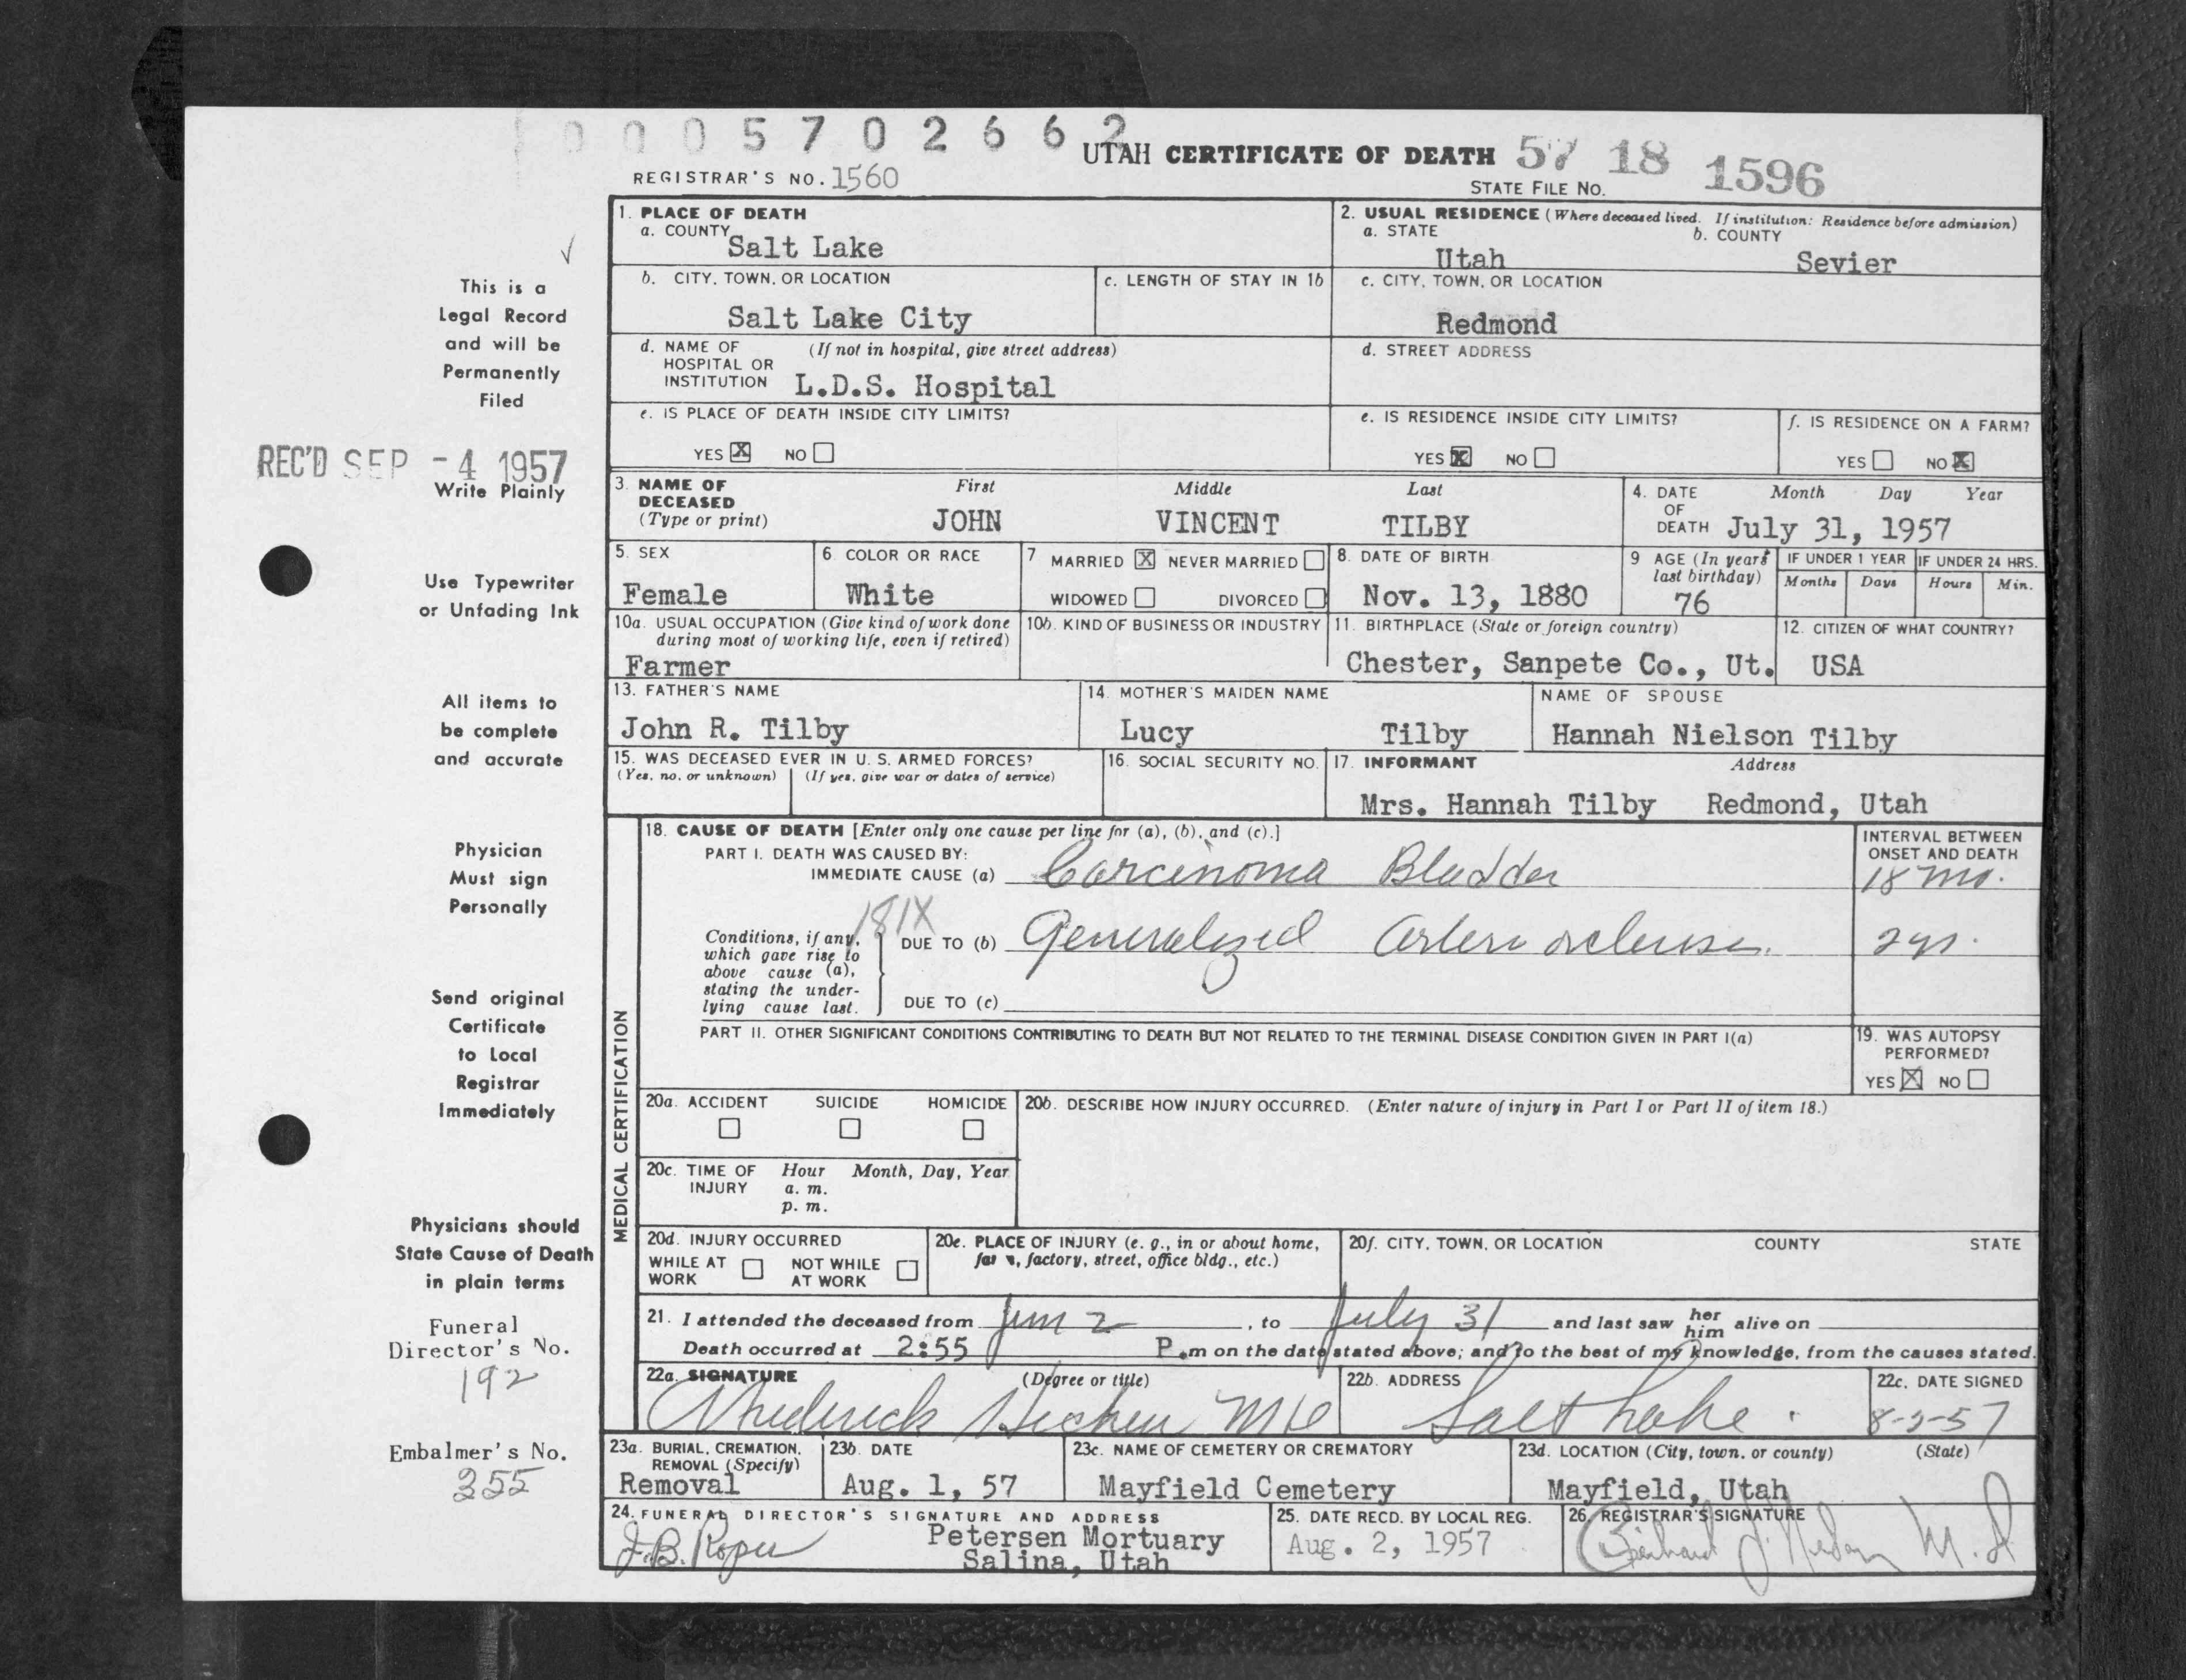 0 0 0 5 7 0 2 6 6 2
UTAH CERTIFICATE OF DEATH 57 18 1596
REGISTRAR'S NO. 1560
STATE FILE NO.
This is a
Legal Record
and will be
Permanently
Filed
REC'D SEP -4 1957
Write Plainly
Use Typewriter
or Unfading Ink
All items to
be complete
and accurate
Physician
Must sign
Personally
Send original
Certificate
to Local
Registrar
Immediately
Physicians should
State Cause of Death
in plain terms
Funeral
Director's No.
192
Embalmer's No.
355
1. PLACE OF DEATH
a. COUNTY
Salt Lake
2. USUAL RESIDENCE (Where deceased lived. If institution: Residence before admission)
a. STATE b. COUNTY
Utah Sevier
b. CITY, TOWN, OR LOCATION
Salt Lake City
c. LENGTH OF STAY IN 1b
c. CITY, TOWN, OR LOCATION
Redmond
d. NAME OF (If not in hospital, give street address)
HOSPITAL OR
INSTITUTION L.D.S. Hospital
d. STREET ADDRESS
e. IS PLACE OF DEATH INSIDE CITY LIMITS?
YES X NO
e. IS RESIDENCE INSIDE CITY LIMITS?
YES X NO
f. IS RESIDENCE ON A FARM?
YES NO X
3. NAME OF First Middle Last
DECEASED
(Type or print) JOHN VINCENT TILBY
4. DATE Month Day Year
OF
DEATH July 31, 1957
5. SEX
Female
6. COLOR OR RACE
White
7 MARRIED X NEVER MARRIED
WIDOWED DIVORCED
8. DATE OF BIRTH
Nov. 13, 1880
9 AGE (In years
last birthday)
76
IF UNDER 1 YEAR
Months Days
IF UNDER 24 HRS.
Hours Min.
10a. USUAL OCCUPATION (Give kind of work done
during most of working life, even if retired)
Farmer
10b. KIND OF BUSINESS OR INDUSTRY
11. BIRTHPLACE (State or foreign country)
Chester, Sanpete Co., Ut.
12. CITIZEN OF WHAT COUNTRY?
USA
13. FATHER'S NAME
John R. Tilby
14. MOTHER'S MAIDEN NAME
Lucy Tilby
NAME OF SPOUSE
Hannah Nielson Tilby
15. WAS DECEASED EVER IN U. S. ARMED FORCES?
(Yes, no, or unknown) (If yes, give war or dates of service)
16. SOCIAL SECURITY NO.
17. INFORMANT Address
Mrs. Hannah Tilby Redmond, Utah
MEDICAL CERTIFICATION
18. CAUSE OF DEATH [Enter only one cause per line for (a), (b), and (c).]
PART I. DEATH WAS CAUSED BY:
IMMEDIATE CAUSE (a) Carcinoma Bladder
INTERVAL BETWEEN
ONSET AND DEATH
18 mo.
181X
Conditions, if any,
which gave rise to
above cause (a),
stating the under-
lying cause last.
DUE TO (b) Generalized Arteriosclerosis. 2 yrs.
DUE TO (c)
PART II. OTHER SIGNIFICANT CONDITIONS CONTRIBUTING TO DEATH BUT NOT RELATED TO THE TERMINAL DISEASE CONDITION GIVEN IN PART I(a)
19. WAS AUTOPSY
PERFORMED?
YES X NO
20a. ACCIDENT SUICIDE HOMICIDE
20b. DESCRIBE HOW INJURY OCCURRED. (Enter nature of injury in Part I or Part II of item 18.)
20c. TIME OF Hour Month, Day, Year
INJURY a. m.
p. m.
20d. INJURY OCCURRED
WHILE AT NOT WHILE
WORK AT WORK
20e. PLACE OF INJURY (e. g., in or about home,
farm, factory, street, office bldg., etc.)
20f. CITY, TOWN, OR LOCATION COUNTY STATE
21. I attended the deceased from 2, to July 31 and last saw her him alive on
Death occurred at 2:55 P.m on the date stated above; and to the best of my knowledge, from the causes stated.
22a. SIGNATURE (Degree or title)
MD
22b. ADDRESS
Salt Lake.
22c. DATE SIGNED
8-2-57
23a. BURIAL, CREMATION,
REMOVAL (Specify)
Removal
23b. DATE
Aug. 1, 57
23c. NAME OF CEMETERY OR CREMATORY
Mayfield Cemetery
23d. LOCATION (City, town, or county) (State)
Mayfield, Utah
24. FUNERAL DIRECTOR'S SIGNATURE AND ADDRESS
J.B. Roper Petersen Mortuary
Salina, Utah
25. DATE RECD. BY LOCAL REG.
Aug. 2, 1957
26. REGISTRAR'S SIGNATURE
M.D.